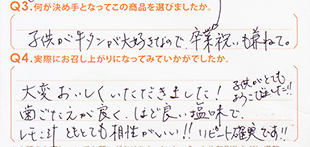 Q3.何が決め手となってこの商品を選びましたか。
子供が牛タンが大好きなので、卒業祝いも兼ねて。
Q4.実際にお召し上がりになってみていかがでしたか。
大変おいしくいただきました！子供がとても
よろこんでました!!
歯ごたえが良く、ほど良い塩味で、
レモン汁ともとても相性がいい!!リピート確実です!!